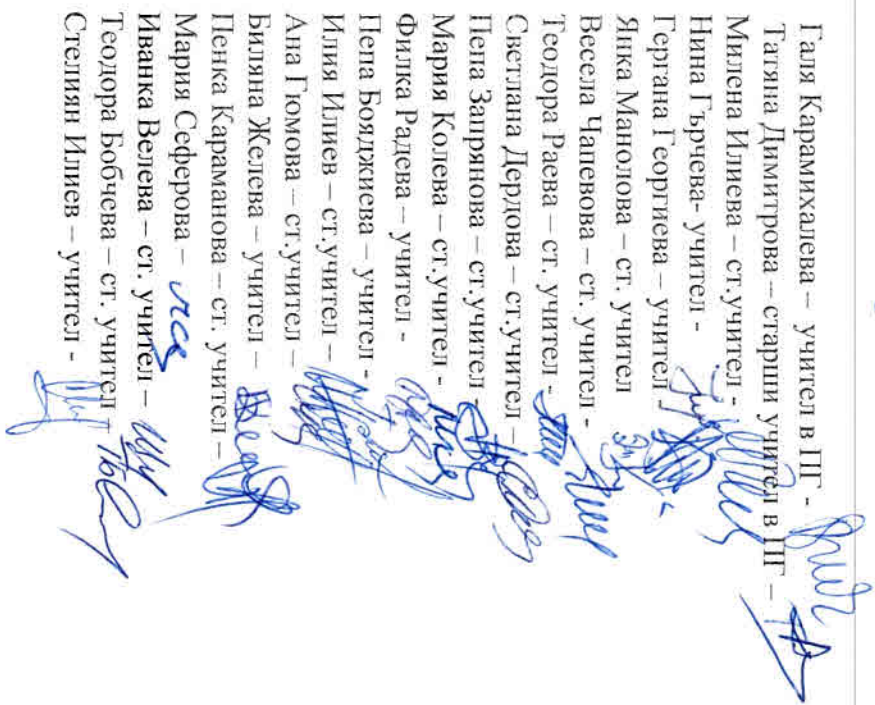 Галя Карамихалева – учител в ПГ -
Татяна Димитрова – старши учител в ПГ –
Милена Илиева – ст.учител -
Нина Гърчева- учител -
Гергана Георгиева – учител
Янка Манолова – ст. учител
Весела Чапевова – ст. учител -
Теодора Раева – ст. учител -
Светлана Дердова – ст.учител –
Пепа Запрянова – ст.учител -
Мария Колева – ст.учител -
Филка Радева – учител -
Пепа Бояджиева – учител -
Илия Илиев – ст.учител –
Ана Гюмова – ст.учител –
Биляна Желева – учител –
Пенка Караманова – ст. учител –
Мария Сеферова –
Иванка Велева – ст. учител –
Теодора Бобчева – ст. учител -
Стелиян Илиев – учител -